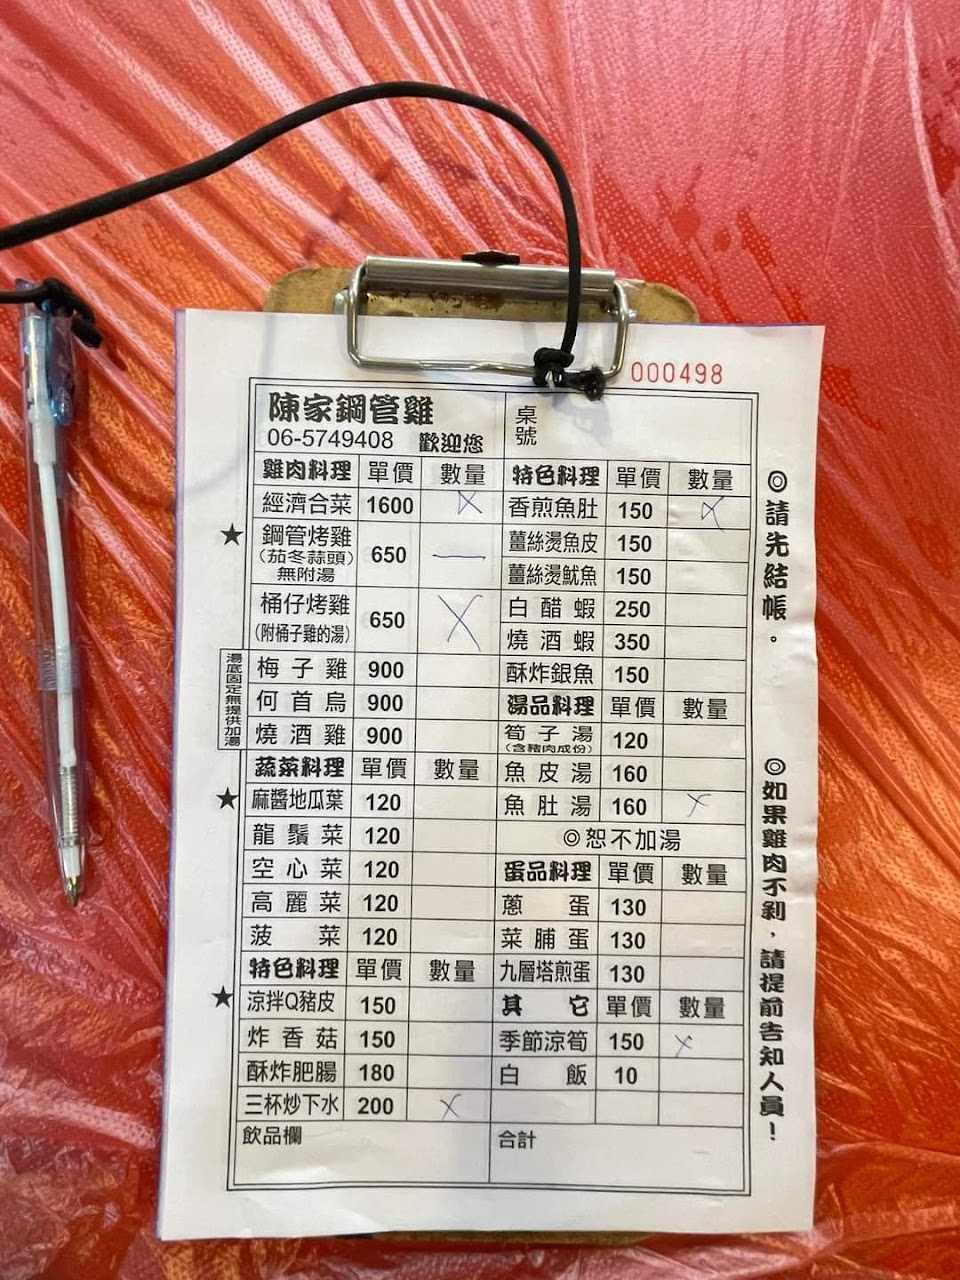 000498
陳家鋼管雞
06-5749408 歡迎您
桌號
雞肉料理 單價 數量
經濟合菜 1600 X
★ 鋼管烤雞 (茄冬蒜頭) 無附湯 650 —
桶仔烤雞 (附桶子雞的湯) 650 X
湯底固定無提供加湯
梅子雞 900
何首烏 900
燒酒雞 900
蔬菜料理 單價 數量
★ 麻醬地瓜葉 120
龍鬚菜 120
空心菜 120
高麗菜 120
菠菜 120
特色料理 單價 數量
★ 涼拌Q豬皮 150
炸香菇 150
酥炸肥腸 180
三杯炒下水 200 X
飲品欄
特色料理 單價 數量
香煎魚肚 150 X
薑絲燙魚皮 150
薑絲燙魷魚 150
白醋蝦 250
燒酒蝦 350
酥炸銀魚 150
湯品料理 單價 數量
筍子湯 (含豬肉成份) 120
魚皮湯 160
魚肚湯 160 X
◎恕不加湯
蛋品料理 單價 數量
蔥蛋 130
菜脯蛋 130
九層塔煎蛋 130
其它 單價 數量
季節涼筍 150 X
白飯 10
合計
◎請先結帳。
◎如果雞肉不剁，請提前告知人員！